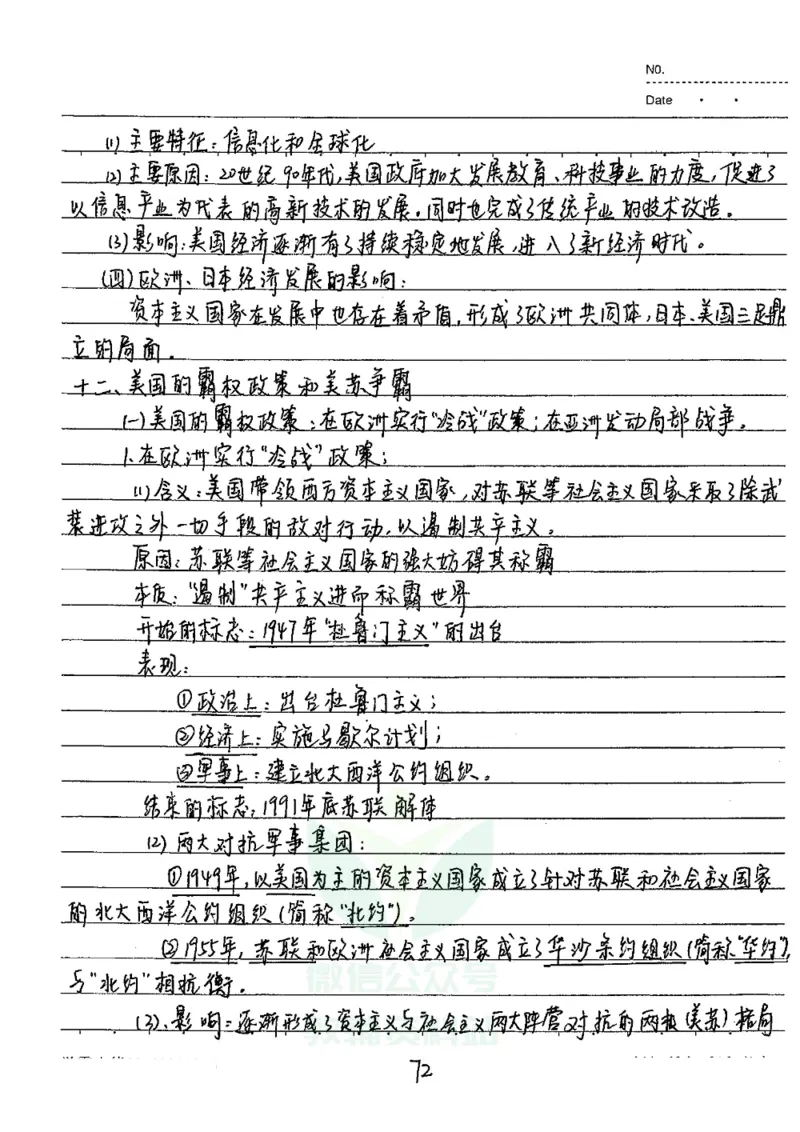 NO.
Date
(1) 主要特征：信息化和全球化
(2)主要原因：20世纪90年代，美国政府加大发展教育、科技事业的力度，促进了
以信息产业为代表的高新技术的发展。同时也完成了传统产业的技术改造。
(3)影响：美国经济逐渐有了持续稳定地发展，进入了新经济时代。
(四)欧洲、日本经济发展的影响：
资本主义国家在发展中也存在着矛盾，形成了欧洲共同体，日本、美国三足鼎
立的局面。
十二、美国的霸权政策和美苏争霸
(一)美国的霸权政策：在欧洲实行"冷战"政策；在亚洲发动局部战争。
1.在欧洲实行"冷战"政策；
(1)含义：美国带领西方资本主义国家，对苏联等社会主义国家采取了除武
装进攻之外一切手段的敌对行动，以遏制共产主义。
原因：苏联等社会主义国家的强大妨碍其称霸
本质："遏制"共产主义进而称霸世界
开始的标志：1947年"杜鲁门主义"的出台
表现：
①政治上：出台杜鲁门主义；
②经济上：实施马歇尔计划；
③军事上：建立北大西洋公约组织。
结束的标志：1991年底苏联解体
(2)两大对抗军事集团：
①1949年，以美国为主的资本主义国家成立了针对苏联和社会主义国家
的北大西洋公约组织(简称"北约")。
②1955年，苏联和欧洲社会主义国家成立了华沙条约组织(简称"华约")，
与"北约"相抗衡。
(3)、影响：逐渐形成了资本主义与社会主义两大阵营对抗的两极(美苏)格局
微信公众号
教辅资料站
72